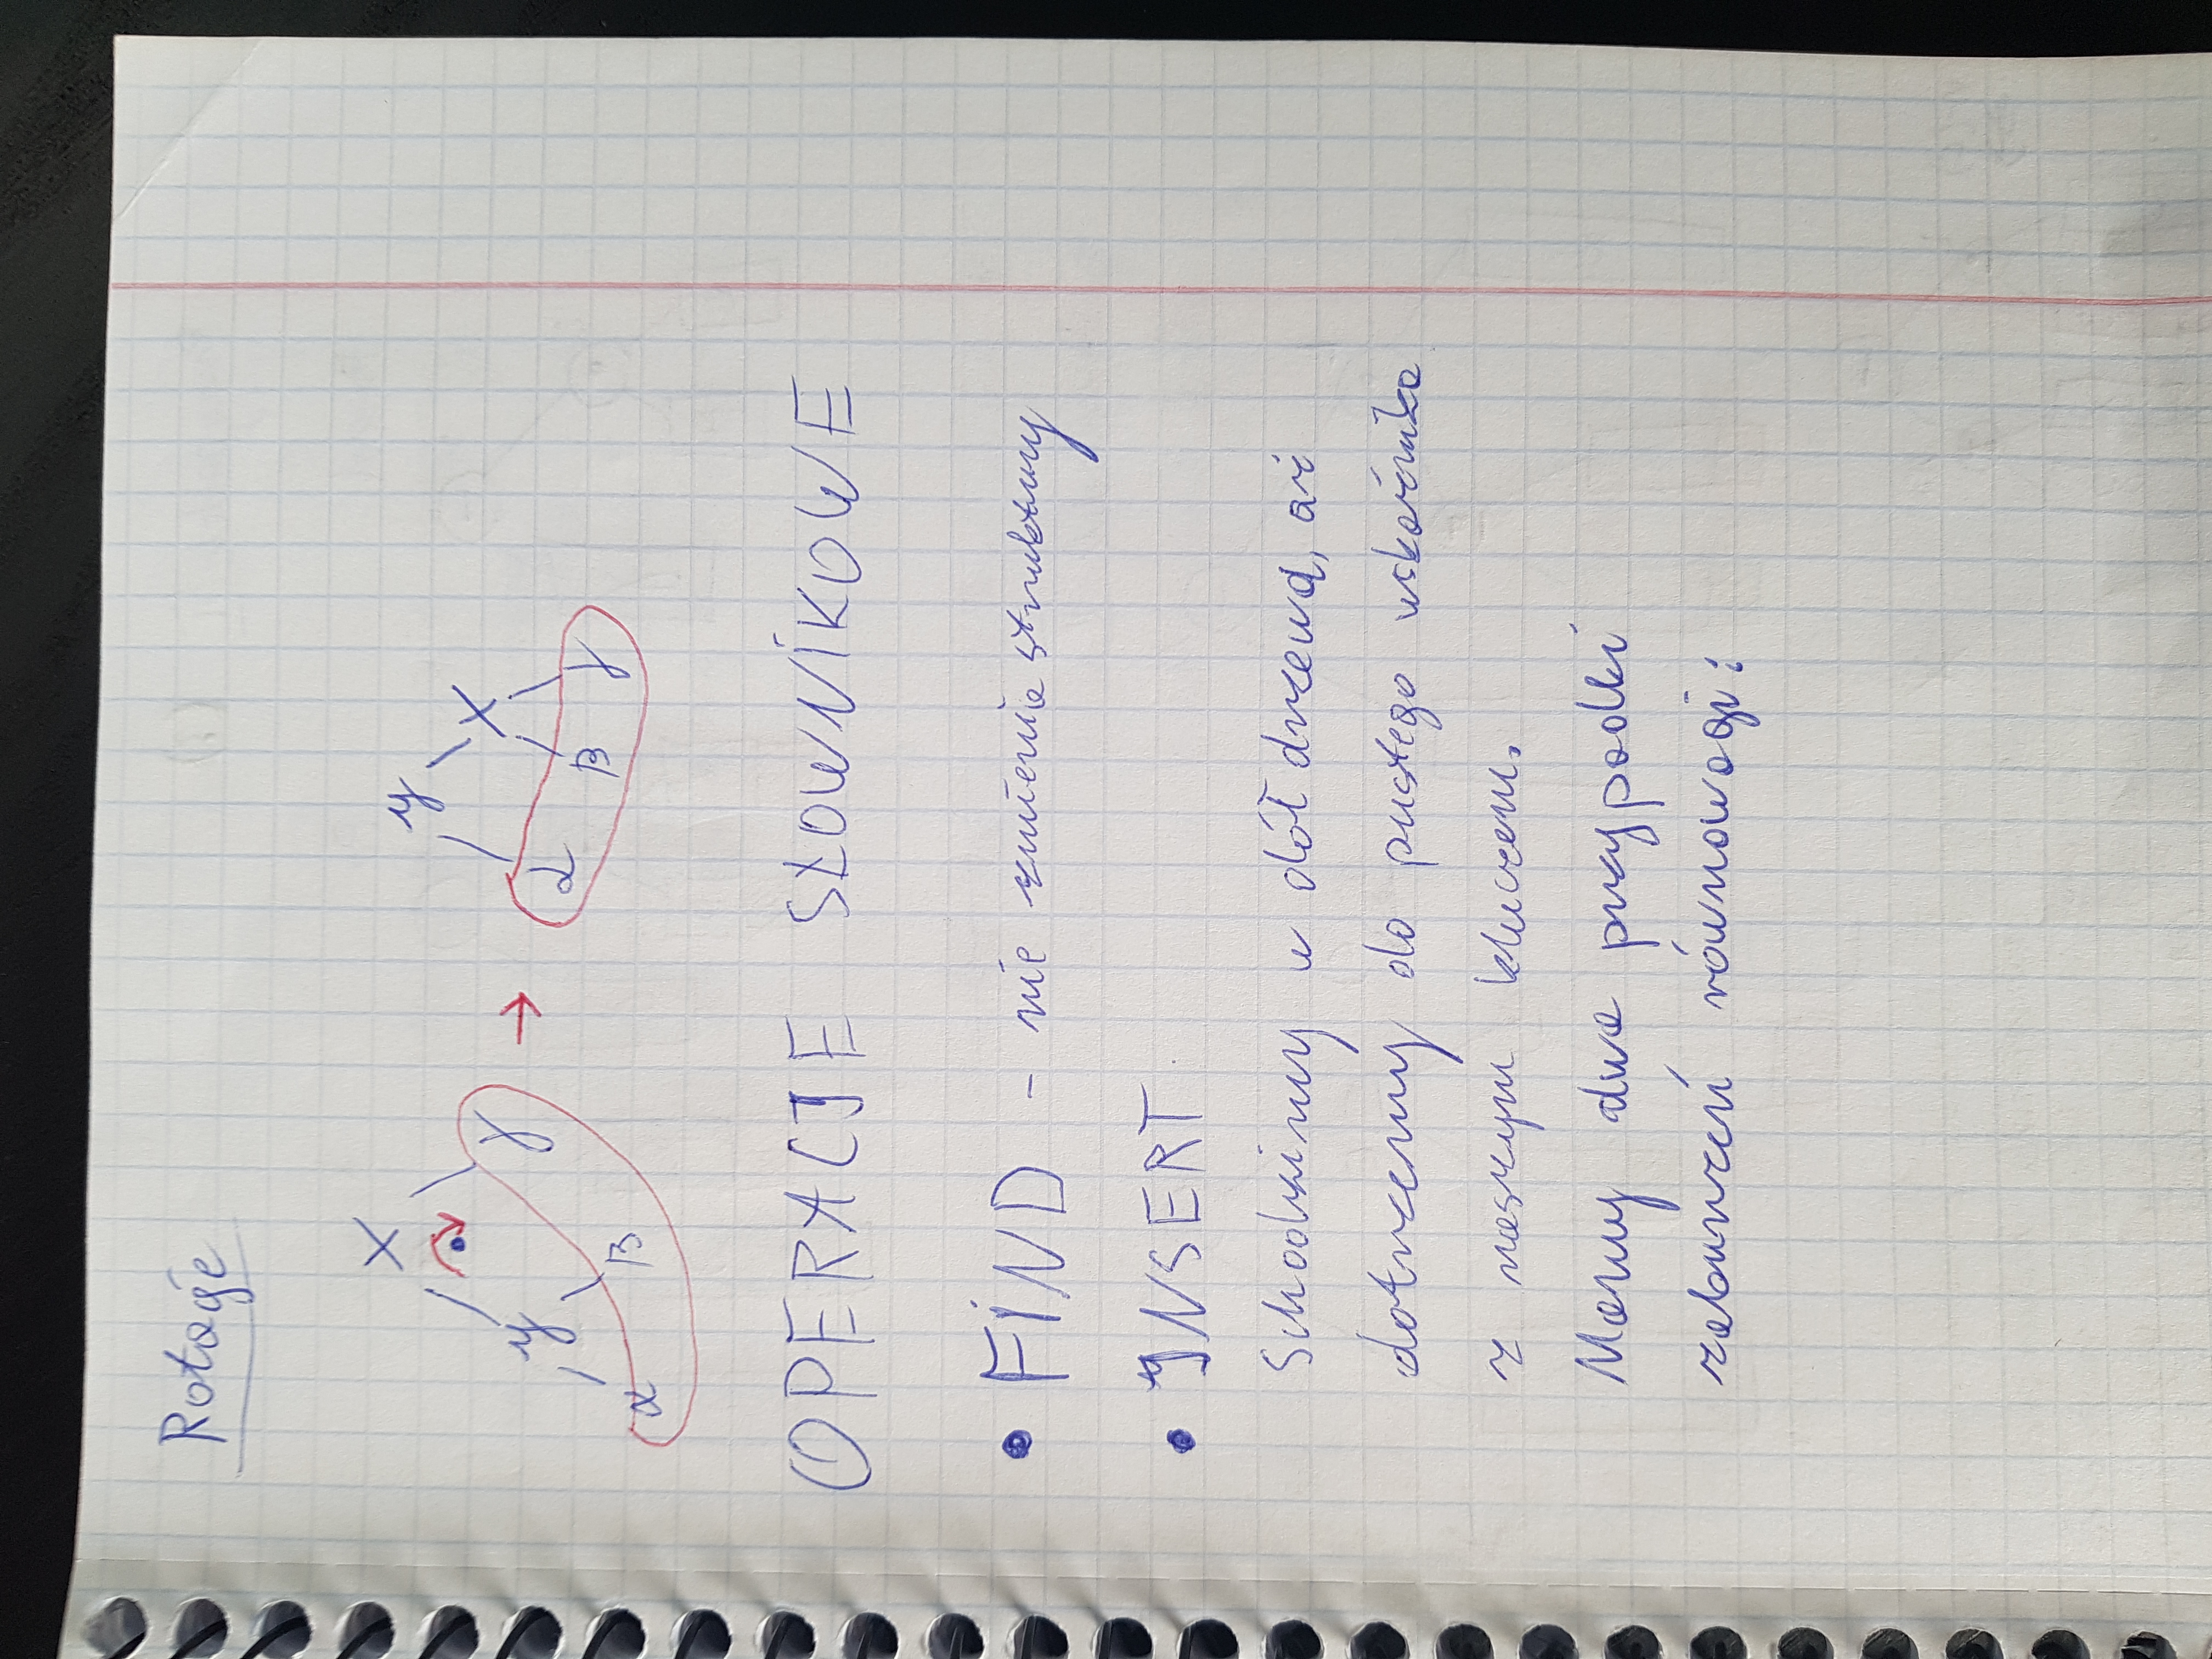 Rotacje
X
y γ
α β
→
y
X
α β γ
OPERACJE SŁOWNIKOWE
• FIND - nie zmienia struktury
• INSERT
Schodzimy w dół drzewa, aż
dotrzemy do pustego wskaźnika
z naszym kluczem.
Mamy dwa przypadki
zaburzeń równowagi: